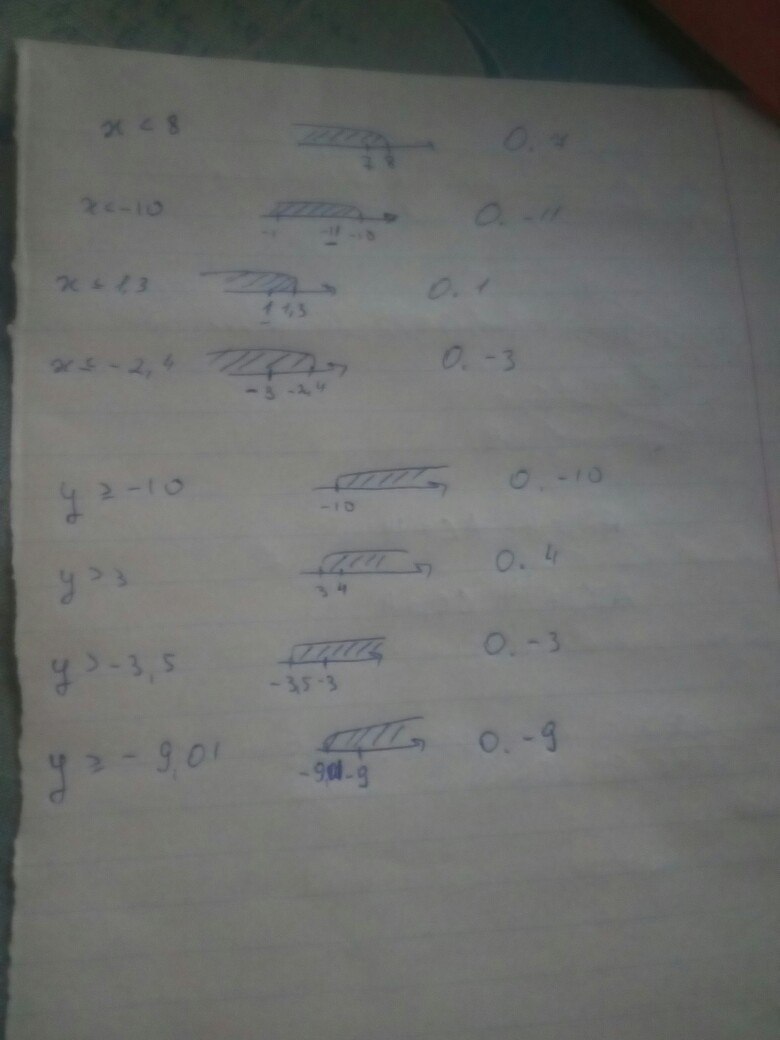 x < 8 7 8 0. 7
x < -10 -1 -11 -10 0. -11
x ≤ 1,3 1 1,3 0. 1
x ≤ -2,4 -3 -2,4 0. -3
y ≥ -10 -10 0. -10
y > 3 3 4 0. 4
y > -3,5 -3,5 -3 0. -3
y ≥ -9,01 -9,01 -9 0. -9